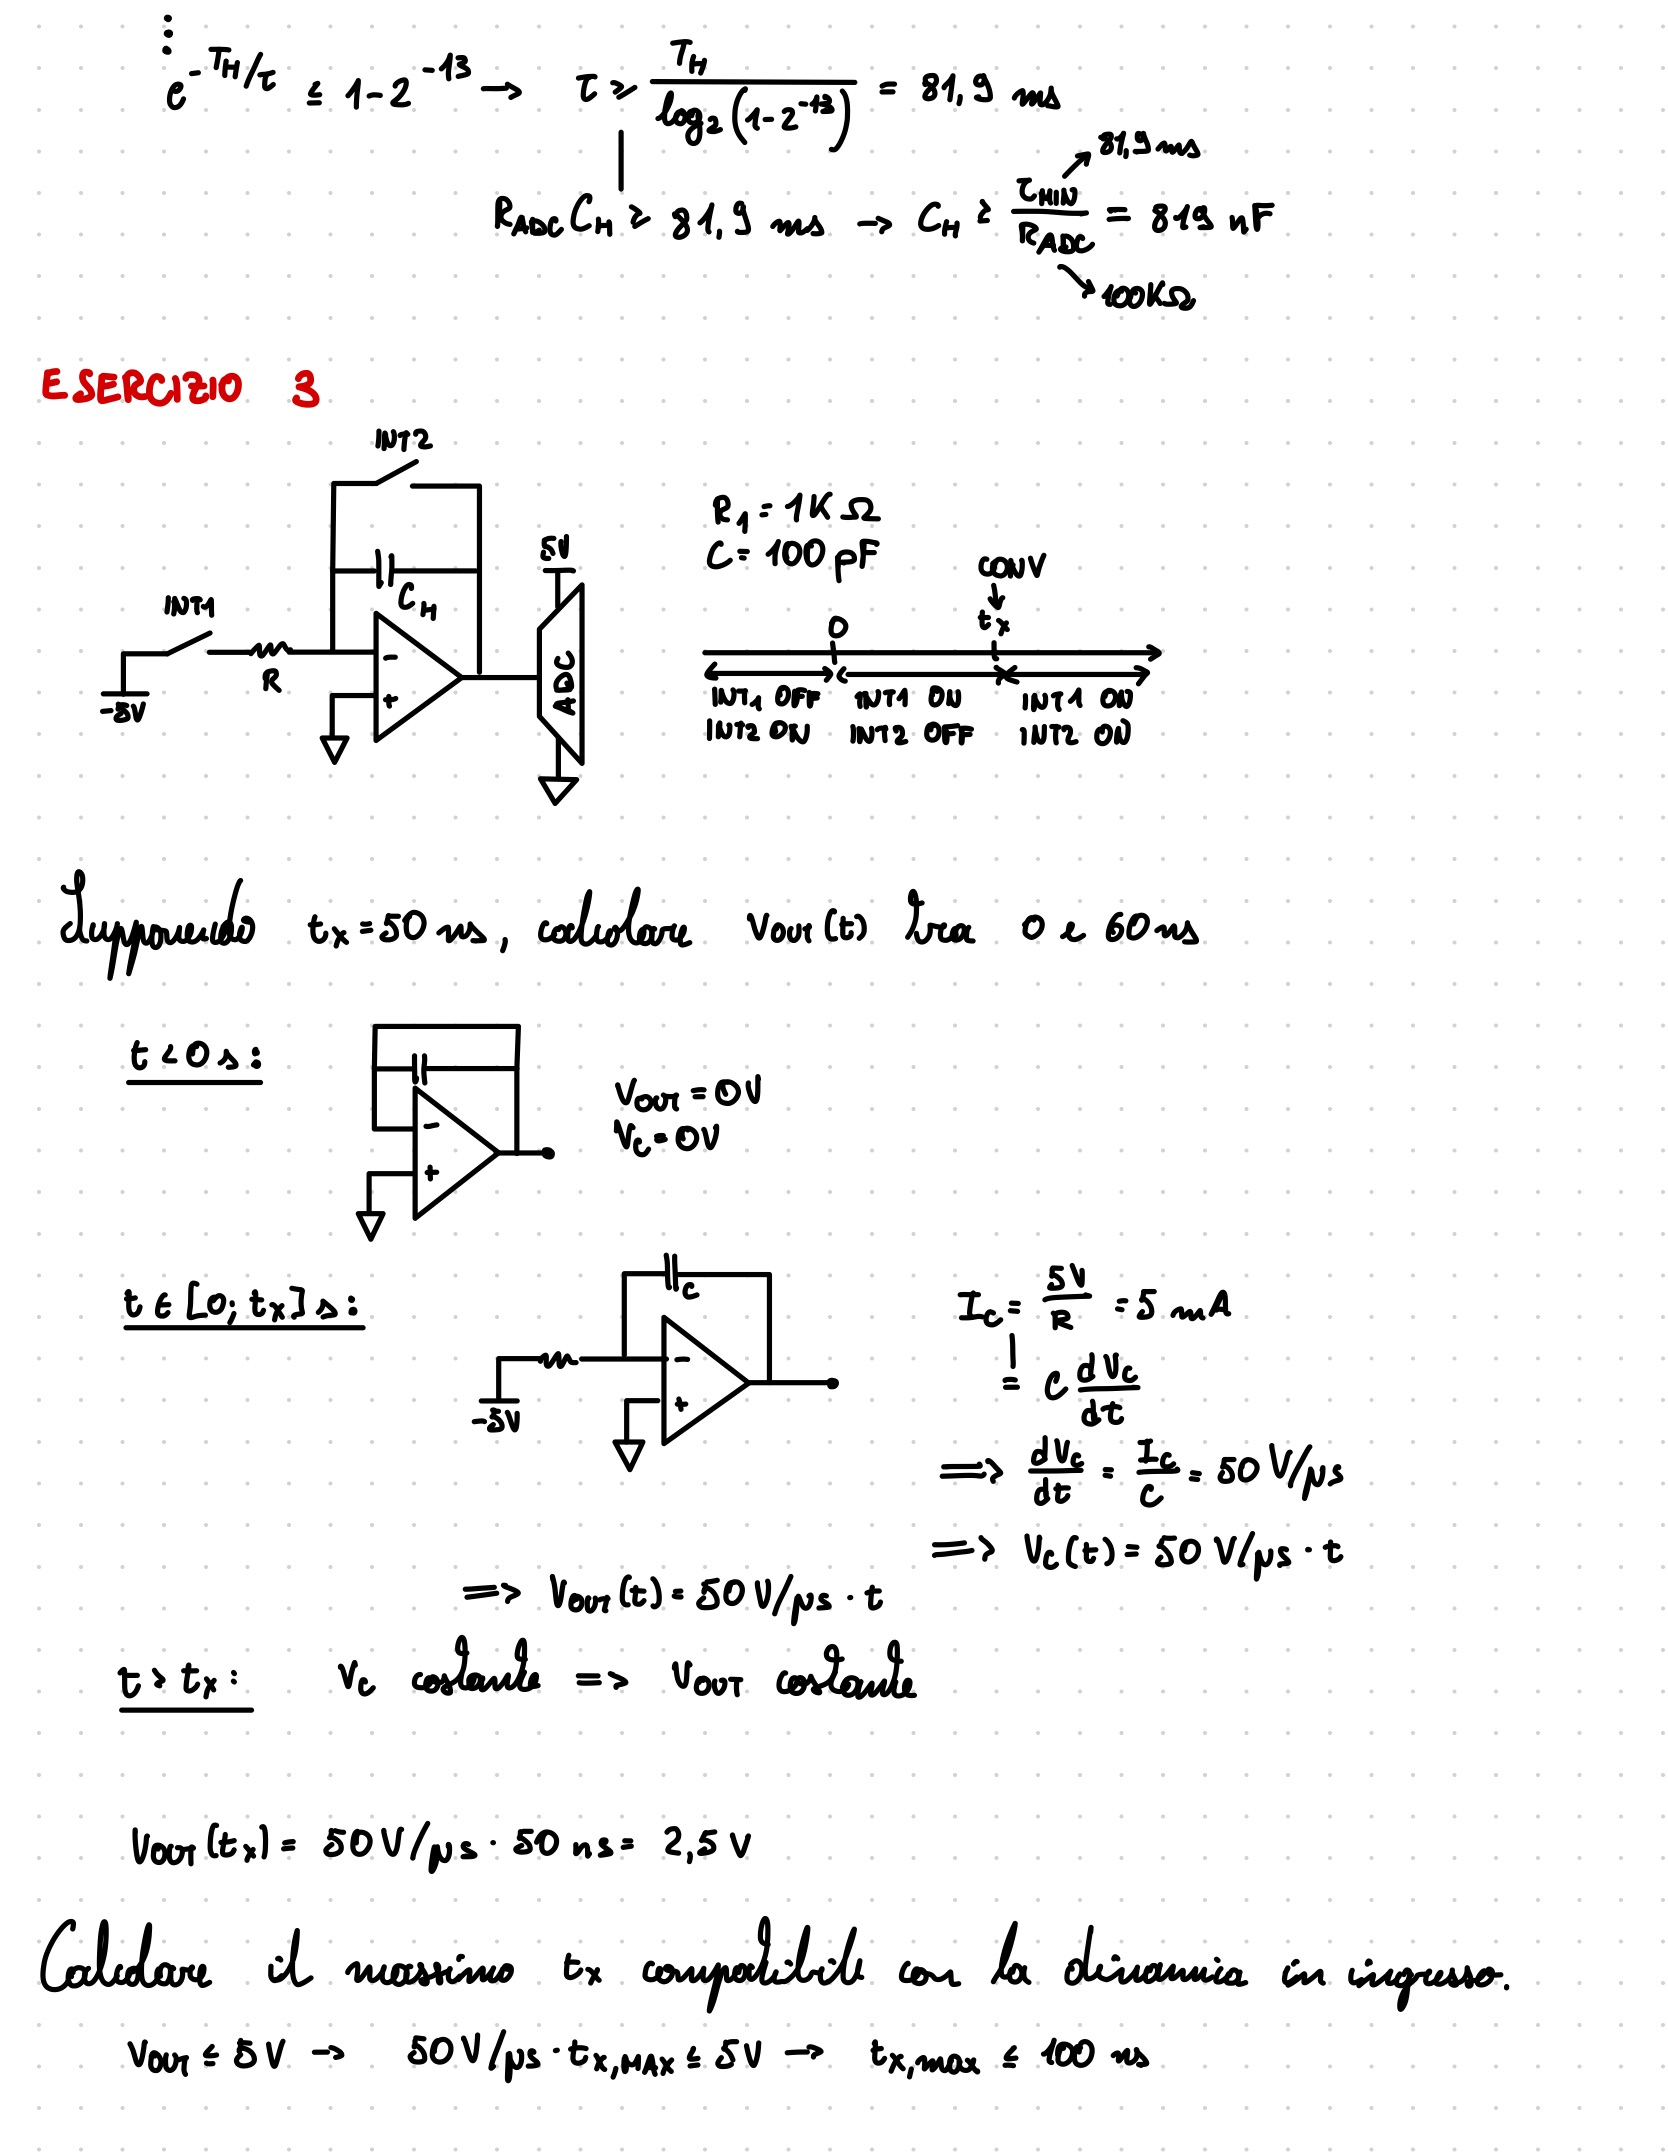 ⋮
e^{-T_H/τ} ≤ 1-2^{-13} → τ ≥ T_H / log₂(1-2^{-13}) = 81,9 ms
81,9 ms
R_ADC C_H ≥ 81,9 ms → C_H ≥ τ_MIN / R_ADC = 819 nF
100KΩ
ESERCIZIO 3
INT2
R₁ = 1KΩ
5V
C = 100 pF
CONV
C_H
INT1
0
t_x
R
-
+
ADC
-5V
INT₁ OFF INT1 ON INT1 ON
INT2 ON INT2 OFF INT2 ON
Supponendo t_x = 50 ns, calcolare V_OUT(t) tra 0 e 60 ns
t < 0 s:
-
+
V_OUT = 0V
V_C = 0V
t ∈ [0; t_x] s:
C
-
+
-5V
I_C = 5V / R = 5 mA
= C dV_C / dt
⇒ dV_C / dt = I_C / C = 50 V/μs
⇒ V_C(t) = 50 V/μs · t
⇒ V_OUT(t) = 50 V/μs · t
t > t_x: V_C costante => V_OUT costante
V_OUT(t_x) = 50 V/μs · 50 ns = 2,5 V
Calcolare il massimo t_x compatibile con la dinamica in ingresso.
V_OUT ≤ 5V → 50 V/μs · t_{x,MAX} ≤ 5V → t_{x,max} ≤ 100 ns